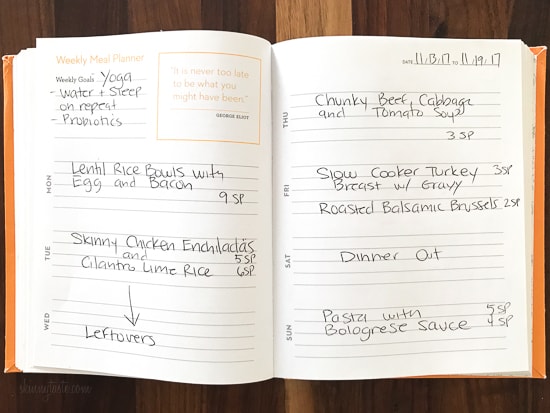 Weekly Meal Planner
Weekly Goals: Yoga
- Water + Sleep
on repeat
- Probiotics
"It is never too late
to be what you
might have been."
GEORGE ELIOT
MON
Lentil Rice Bowls with
Egg and Bacon
9 SP
TUE
Skinny Chicken Enchiladas
5SP
and
Cilantro Lime Rice 6SP
WED
Leftovers
DATE 11/13/17 TO 11/19/17
THU
Chunky Beef, Cabbage
and Tomato Soup
3 SP
FRI
Slow Cooker Turkey 3SP
Breast w/ Gravy
Roasted Balsamic Brussels 2SP
SAT
Dinner Out
SUN
Pasta with 5SP
Bolognese Sauce 4SP
skinnytaste.com